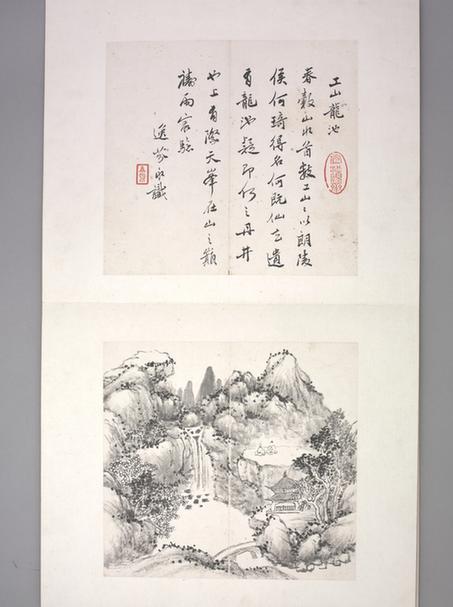 工山龍池
春穀山水首數工山之以朗陵
侯何琦得名何既仙去遺
有龍池疑即何之丹井
也上有際天峯在山之巔
禱雨宗驗
逸